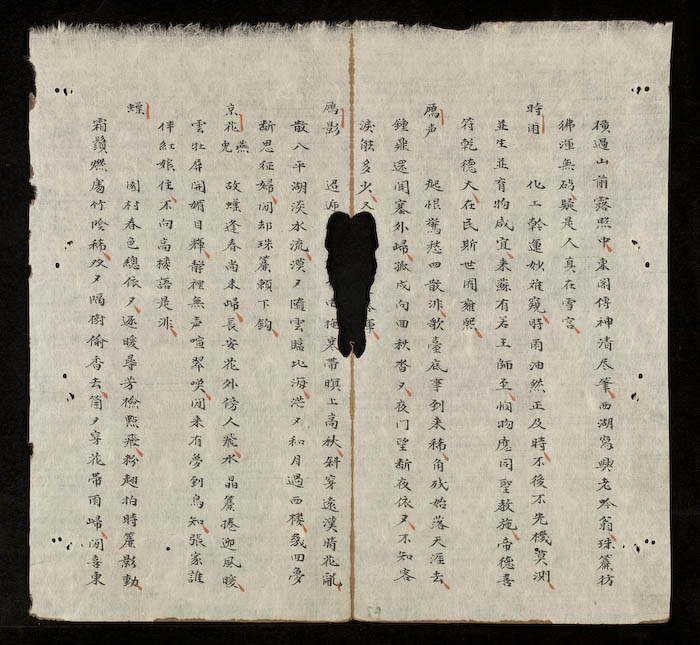 橫遇山前露照中東園傳神清尽筆西湖寫興老黔翁珠簾彷
彿渾無碍疑是人真在雪宮
時雨 化工斡運妙难窺時雨油然正及時不後不先機莫測
並生並育物咸宜来蘇有若王師至憫物應同聖教施帝德喜
符乾德大在民斯世囿雍熙
鴈声 起恨驚愁四散淒歌臺底事到来稀角残始落天涯去
鍾鼎還闻塞外歸孤戍向回秋杳又夜門望断夜依又不知客
淚能多少又
鴈影 迢 拖寒帶暝上高秋斜穿遠漢晴花亂
散入平湖淡水流漠又隨雲臨北海茫又和月過西樓幾回夢
断思征婦闲却珠簾賴下鈎
京花兜燕 故蝶逢春尚未歸長安花外傍人飛水晶簾捲迎風暖
雲壯屏開媚日輝静裡無声喧翠喚闲来有夢到烏知張家誰
伴紅娘住不向高樓語是非
蝶 園村春色總依又逐暖尋芳檢點飛粉翅拍時簾影動
霜鬚燃處竹陰稀欢又隔樹偷香去箇又穿花帶雨歸闲喜東
59